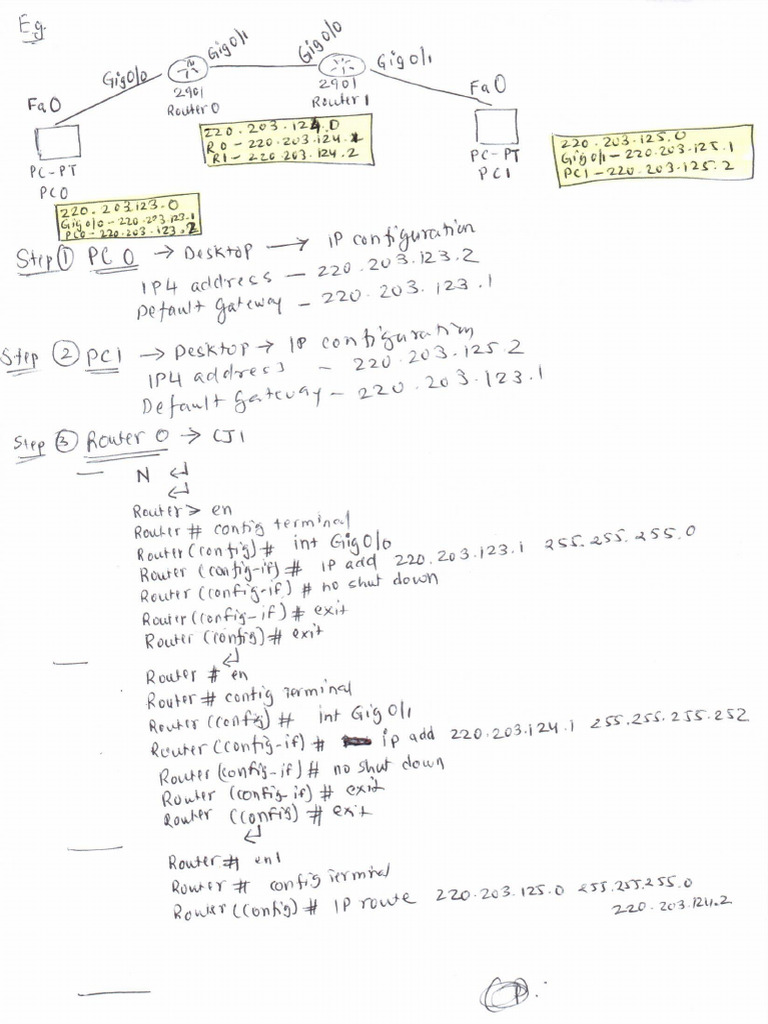 E.g.
Gig0/0
Gig0/1
Gig0/0
Gig0/1
2901
Router 0
2901
Router 1
Fa0
PC-PT
PC0
Fa0
PC-PT
PC1
220.203.124.0
R0 - 220.203.124.1
R1 - 220.203.124.2
220.203.125.0
Gig0/1 - 220.203.125.1
PC1 - 220.203.125.2
220.203.123.0
Gig0/0 - 220.203.123.1
PC0 - 220.203.123.2
Step ① PC0 → Desktop → IP configuration
IP4 address - 220.203.123.2
Default Gateway - 220.203.123.1
Step ② PC1 → Desktop → IP configuration
IP4 address - 220.203.125.2
Default Gateway - 220.203.123.1
Step ③ Router 0 → CJ1
N ↵
↵
Router> en
Router # config terminal
Router (config) # int Gig0/0
Router (config-if) # IP add 220.203.123.1 255.255.255.0
Router (config-if) # no shut down
Router (config-if) # exit
Router (config) # exit
↵
Router # en
Router # config Terminal
Router (config) # int Gig0/1
Router (config-if) # ip add 220.203.124.1 255.255.255.252
Router (config-if) # no shut down
Router (config-if) # exit
Router (config) # exit
↵
Router # en1
Router # config Terminal
Router (config) # IP route 220.203.125.0 255.255.255.0
220.203.124.2